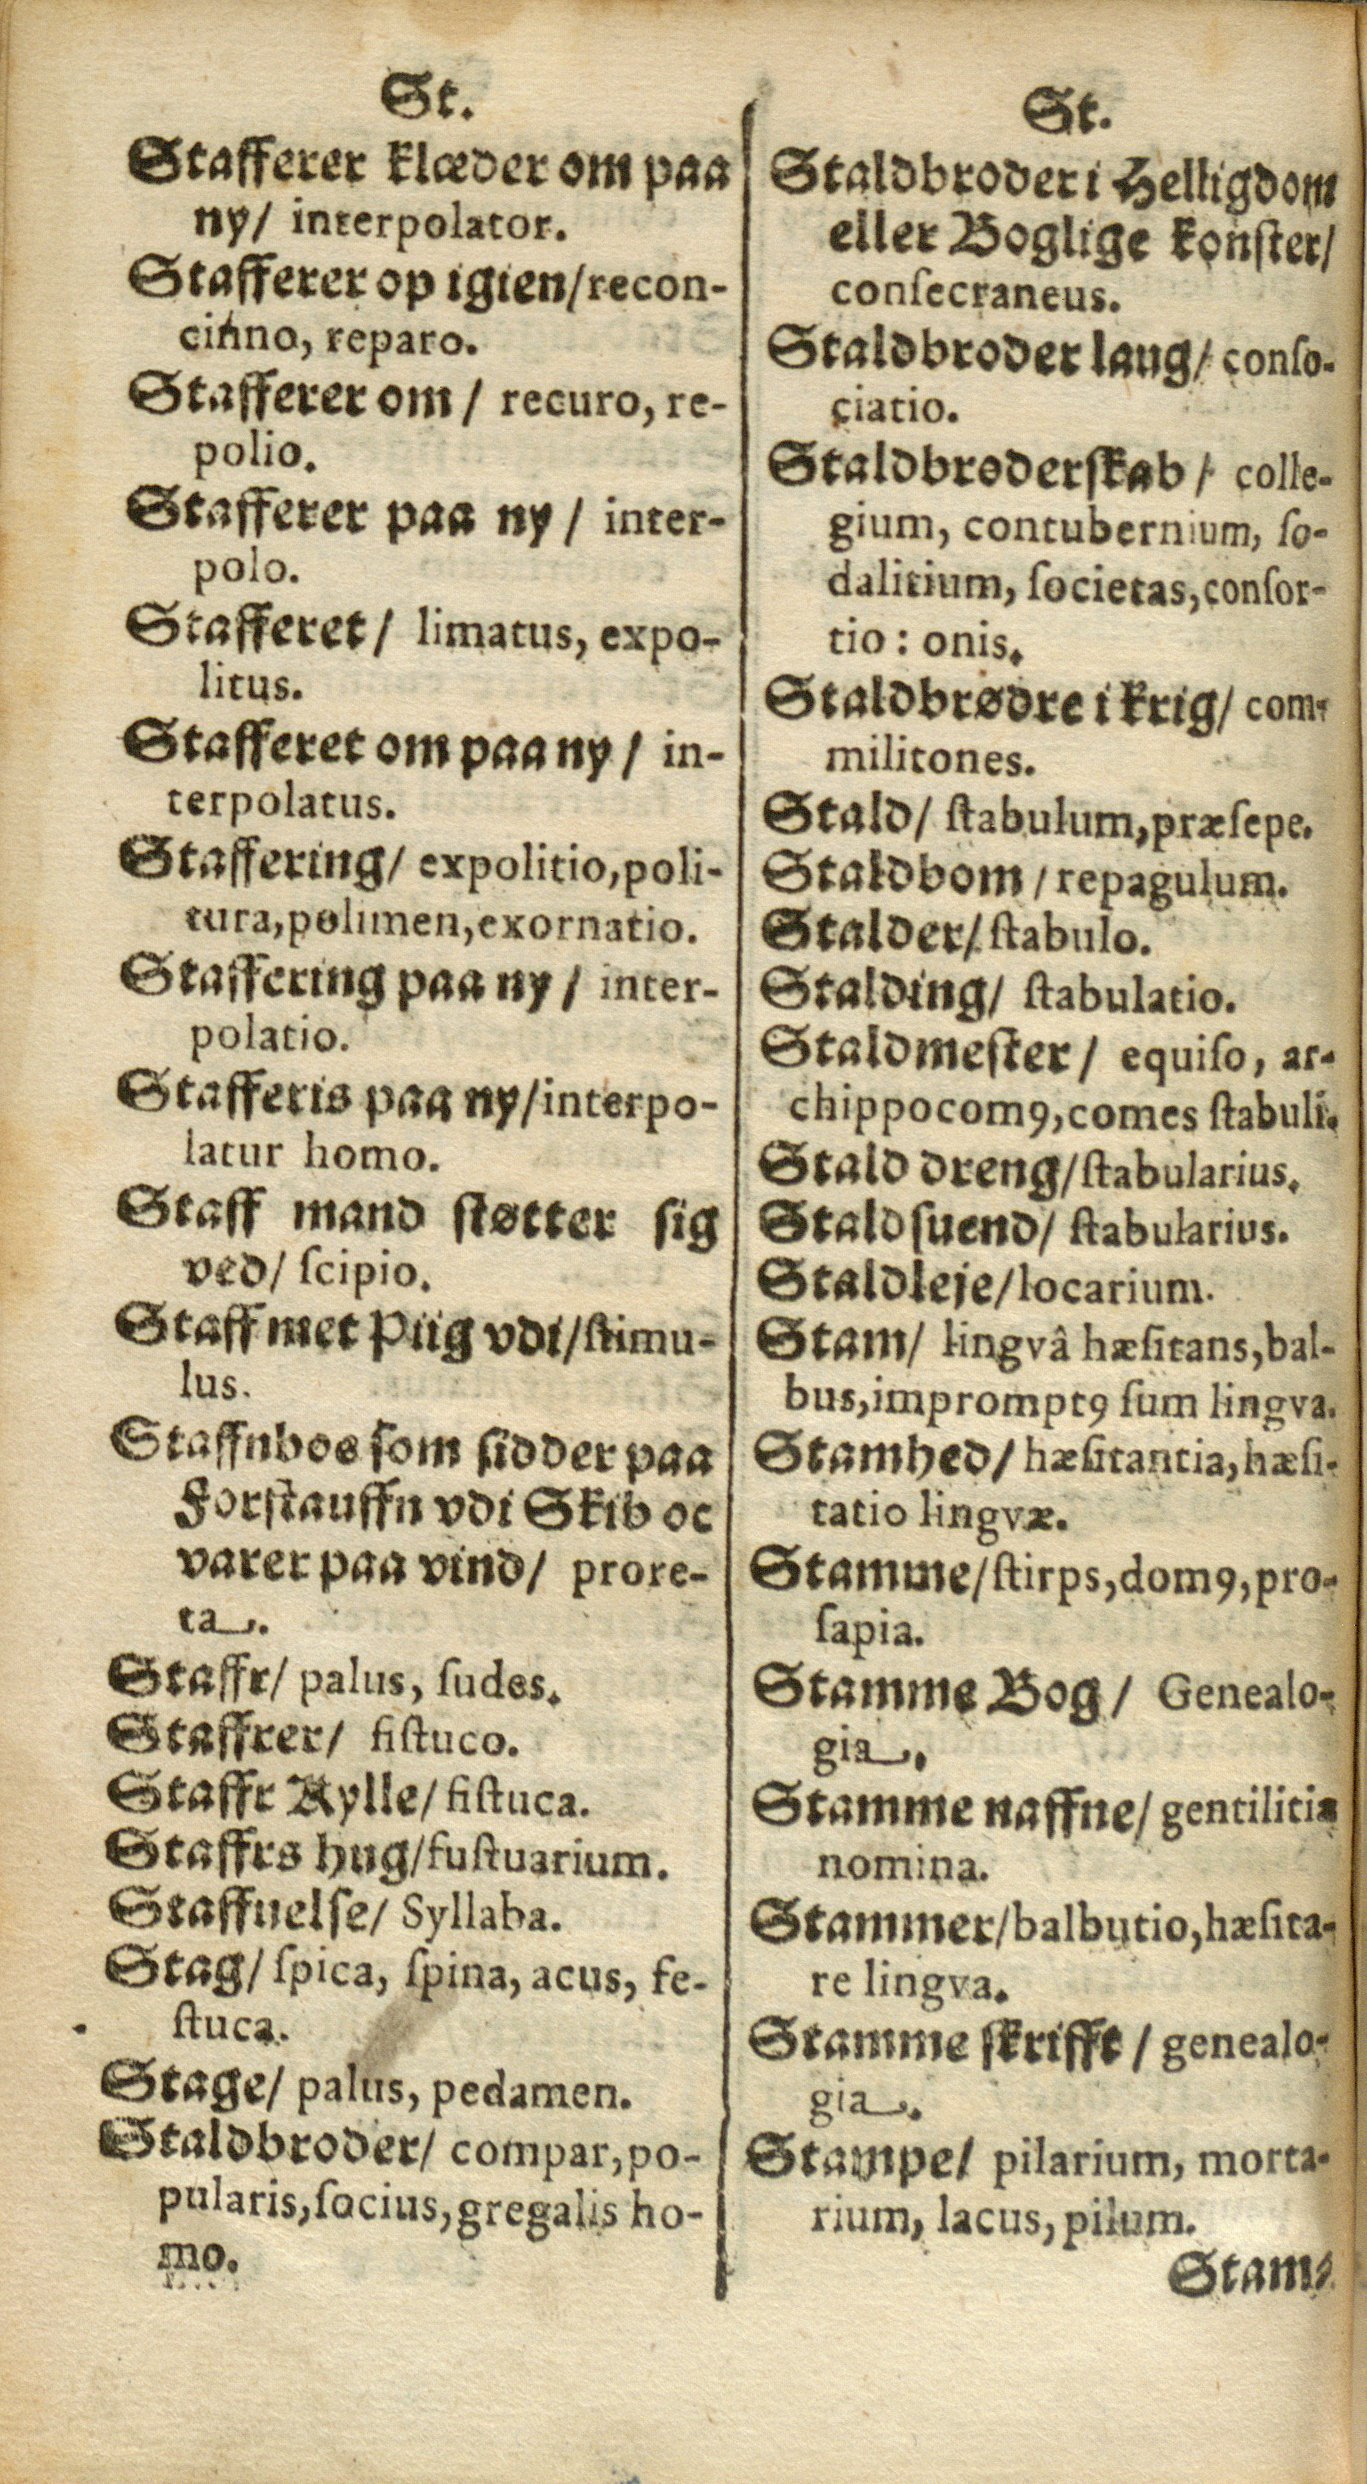 St.
Stafferer klæder om paa
ny/ interpolator.
Stafferer op igien/recon-
cinno, reparo.
Stafferer om / recuro, re-
polio.
Stafferer paa ny / inter-
polo.
Stafferet / limatus, expo-
litus.
Stafferet om paa ny / in-
terpolatus.
Staffering/ expolitio,poli-
tura,polimen,exornatio.
Staffering paa ny / inter-
polatio.
Stafferis paa ny/interpo-
latur homo.
Staff mand støtter sig
ved/ ſcipio.
Staff met Piig vdi/ſtimu-
lus.
Staffnboe som sidder paa
Forstauffn vdi Skib oc
varer paa vind/ prore-
ta.
Staffr/ palus, ſudes.
Staffrer/ fiſtuco.
Staffr Kylle/ fiſtuca.
Staffrs hug/fuſtuarium.
Staffuelse/ Syllaba.
Stag/ ſpica, ſpina, acus, fe-
ſtuca.
Stage/ palus, pedamen.
Staldbroder/ compar,po-
pularis,ſocius,gregalis ho-
mo.
St.
Staldbroder i Helligdom
eller Boglige konster/
conſecraneus.
Staldbroder laug/ conſo-
ciatio.
Staldbroderskab / colle-
gium, contubernium, ſo-
dalitium, ſocietas,conſor-
tio : onis.
Staldbrødre i krig/ com-
militones.
Stald/ ſtabulum,præſepe.
Staldbom / repagulum.
Stalder/ ſtabulo.
Stalding/ ſtabulatio.
Staldmester / equiſo, ar-
chippocomꝯ,comes ſtabuli.
Stald dreng/ſtabularius.
Stald suend/ ſtabularius.
Staldleje/locarium.
Stam/ lingvâ hæſitans,bal-
bus,impromptꝯ ſum lingva.
Stamhed/ hæſitantia,hæſi-
tatio lingvæ.
Stamme/ſtirps,domꝯ,pro-
ſapia.
Stamme Bog / Genealo-
gia.
Stamme naffne/ gentilitia
nomina.
Stammer/balbutio,hæſita-
re lingva.
Stamme skrifft / genealo-
gia.
Stampe/ pilarium, morta-
rium, lacus, pilum.
Stam-